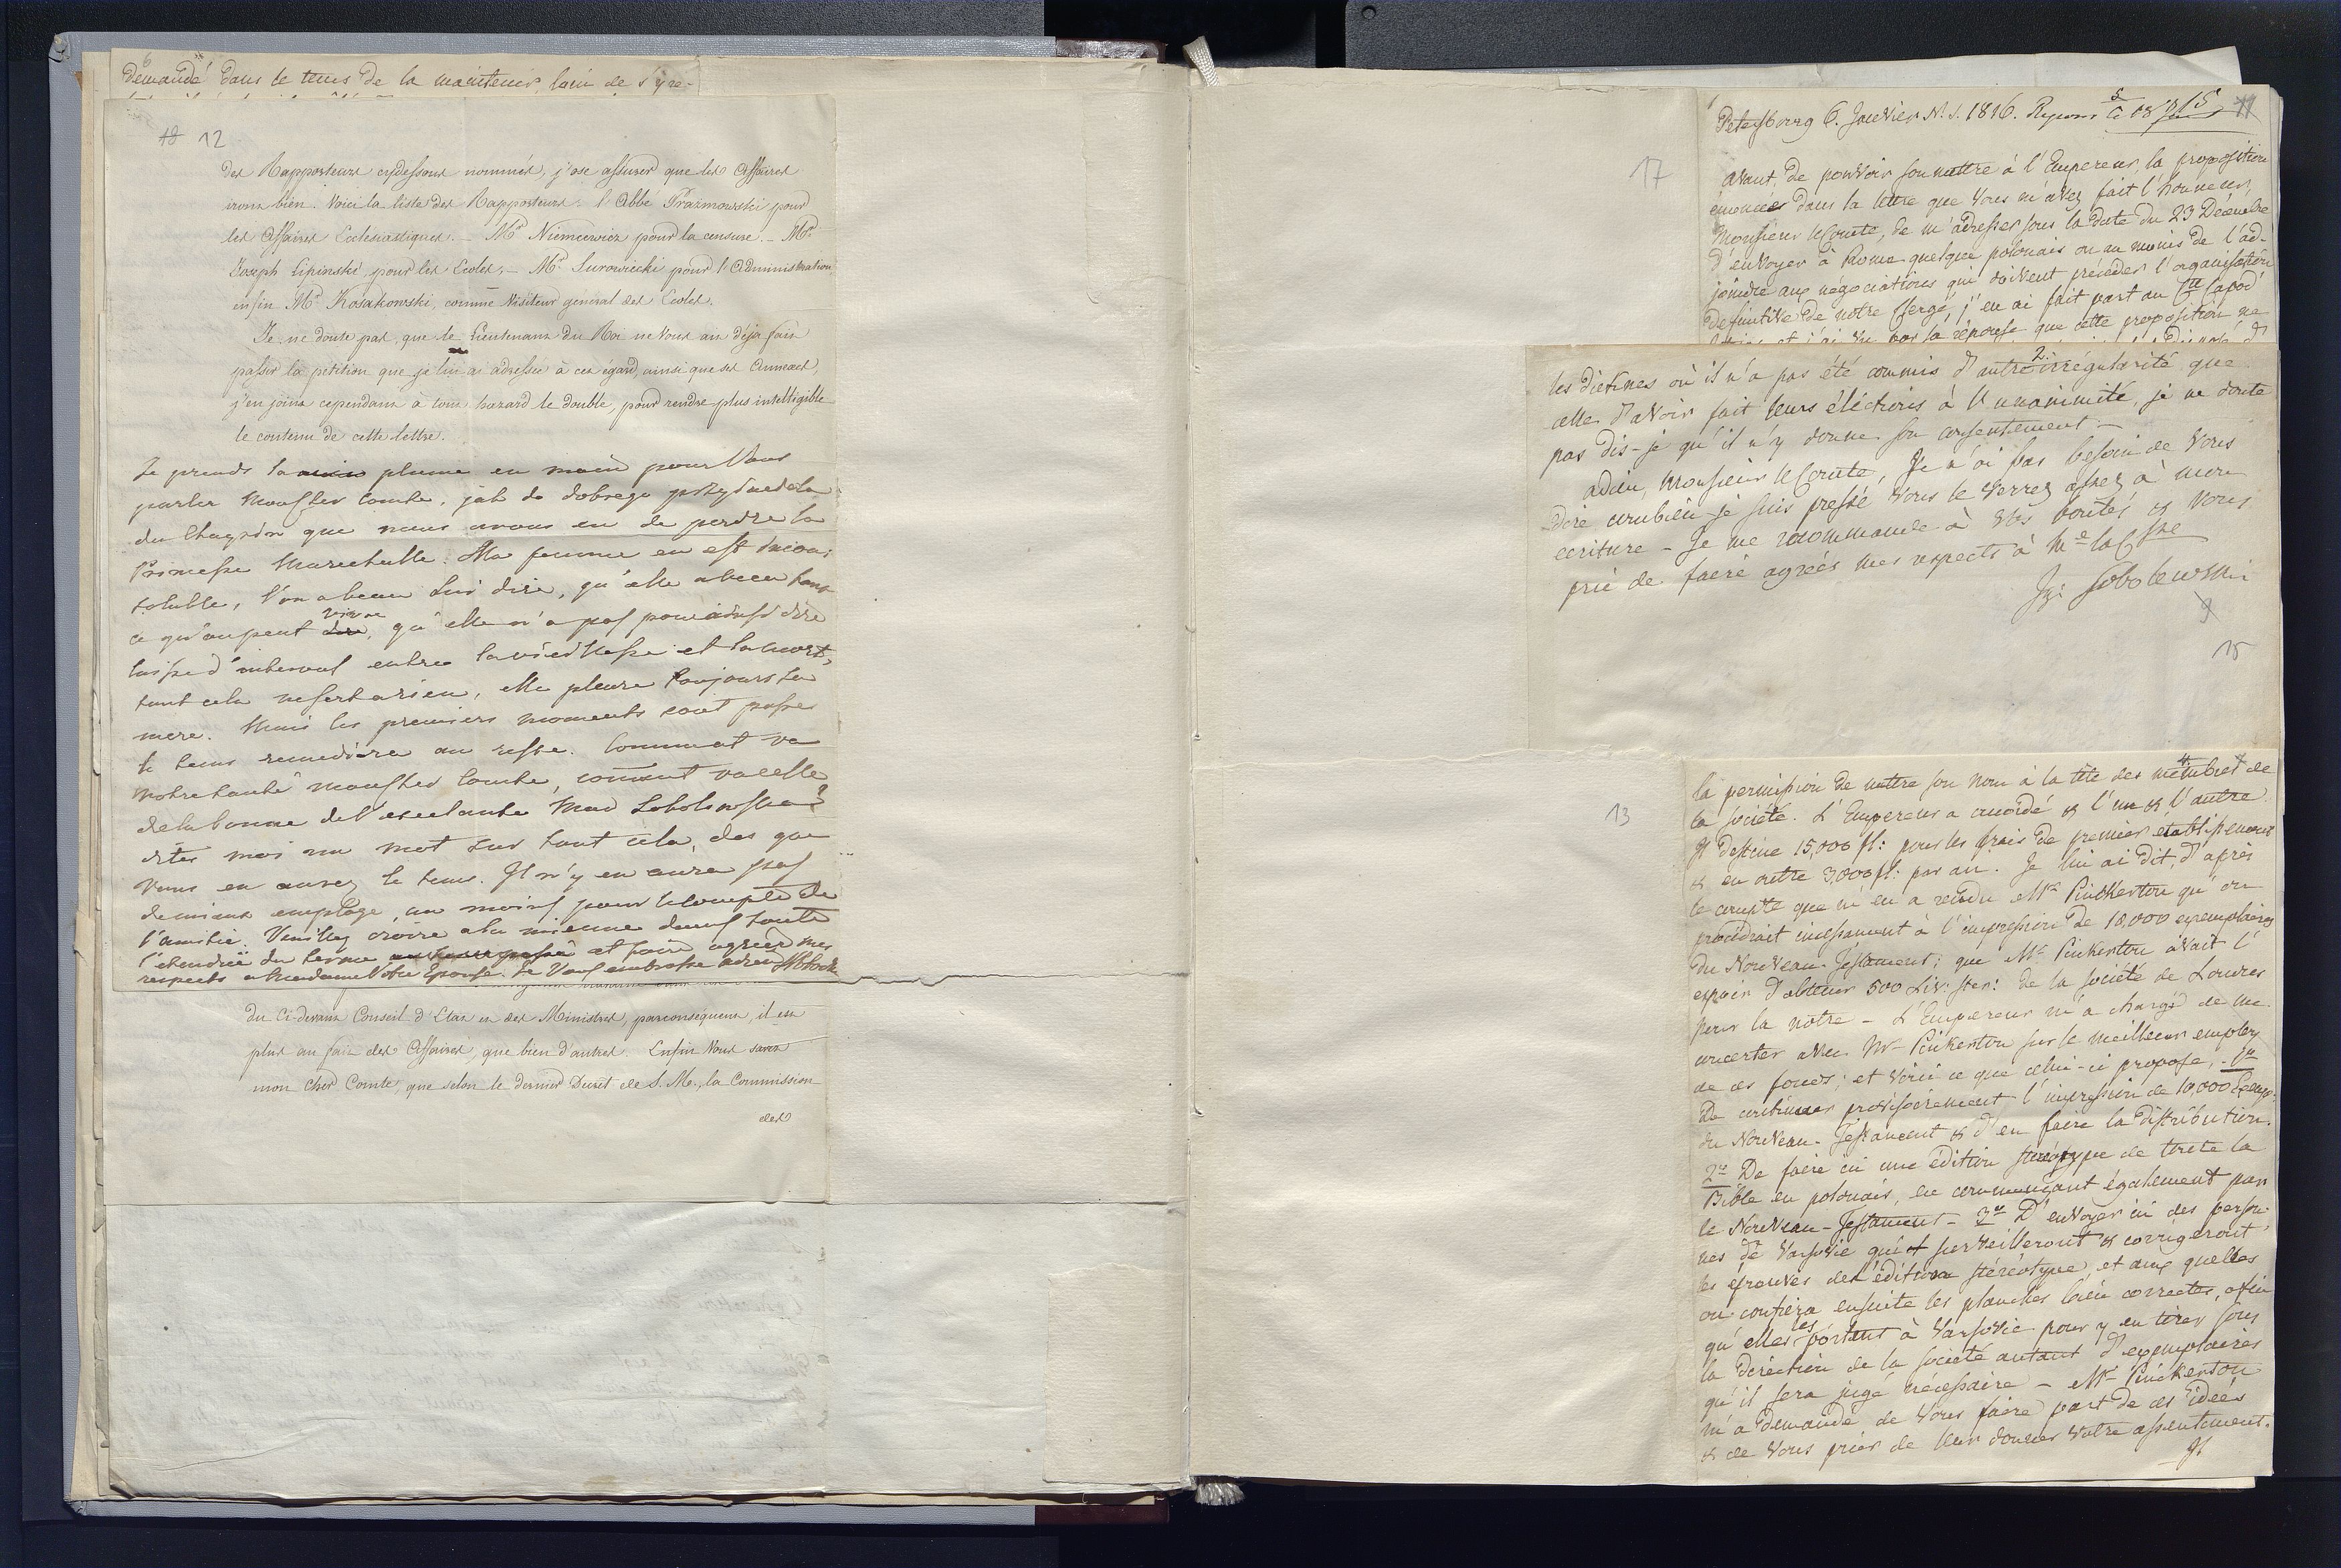 6
demandé dans le tems de la maintenir, loin de s'y re-
12
des Rapporteurs cydessous nommés, j'ose assurer que les Affaires
irons bien. Voici la liste des Rapporteurs: l'Abbé Prazmowski pour
les Affaires Ecclesiastiques. — Mr Niemcewicz pour la censure. — Mr
Joseph Lipinski, pour les Ecoles, — Mr Surowiecki pour l'Administration
enfin Mr Kosakowski, comme Visiteur général des Ecoles.
Je ne doute pas, que le Lieutenant du Roi ne Vous ait déja fait
passer la petition que je lui ai adressée à cet égard, ainsi que ses Annexes,
j'en joins cependant à tout hazard le double, pour rendre plus intelligible
le contenu de cette lettre.
Je prends la plume en main pour Vous
parler Monsieur Comte, jak do dobrego przyjaciela
du Chagrin que nous avons eu de perdre la
Princesse Marechalle. Ma femme en est incon-
soluble, l'on a beau lui dire, qu'elle a vecu tant
ce qu'on peut vivre, qu'elle n'a pas pour ainsi dire
laissé d'interval entre la vieillesse et la mort,
tout cela ne sert a rien, elle pleure toujours sa
mere. Mais les premiers moments sont passés
le tems remediera au reste. Comment va
Votre santé Monsieur Comte, comment va celle
de la bonne de l'excelente Mad Sobolewska?
dites moi un mot sur tout cela, des que
Vous en aurez le tems. Il n'y en aura pas
de mieux employé, au moins pour le compte de
l'amitié. Veuillez croire a la mienne dans toute
l'etendue du terme et faire agréer mes
respects a Madame Votre Epouse. Je Vous embrasse adieu
du Ci-devant Conseil d'Etat et des Ministres, parconséquent, il est
plus au fait des Affaires, que bien d'autres. Enfin Vous savez
mon cher Comte, que selon le dernier Decret de S. M., la Commission
des
17
Petersbourg 6. Janvier N. S. 1816.
avant de pouvoir soumettre à l'Empereur la proposition
énoncée dans la lettre que Vous m'avez fait l'honneur,
Monsieur le Comte, de m'adresser sous la date du 23 Décembre
d'envoyer à Rome quelque polonais ou au moins de l'ad-
joindre aux négociations qui doivent précéder l'organisation
définitive de notre Clergé, j'en ai fait part au Cte Capod'
et j'ai vu par sa réponse que cette proposition ne
2.
les diétines où il n'a pas été commis d'autre irrégularité que
celle d'avoir fait leurs éléctions à l'unanimité, je ne doute
pas dis-je qu'il n'y donne son consentement —
adieu, Monsieur le Comte, Je n'ai pas besoin de Vous
dire combien je suis pressé Vous le verrez assez à mon
ecriture — Je me recommande à Vos bontés & Vous
prie de faire agréer mes respects à Me la Ctsse
Sobolewski
15
13
4.
la permission de mettre son nom à la tête des membres de
la société. L'Empereur a accordé & l'un & l'autre
Il destine 15,000 fl: pour les frais de premier établissement
& en outre 3,000 fl: par an. Je lui ai dit, d'après
le compte que m'en a rendu Mr Pinkerton qu'on
procédrait incessament à l'impression de 10,000 exemplaires
du Nouveau-Testament; que Mr Pinkerton avait l'
espoir d'obtenir 500 Liv: ster: de la société de Londres
pour la nôtre — L'Empereur m'a chargé de me
concerter avec Mr Pinkerton sur le meilleur employ
de ces fonds; et voici ce que celui-ci propose, 1o
De continuer provisoirement l'impression de 10,000 Exemp:
du Nouveau-Testament & d'en faire la distribution.
2o De faire ici une édition stéréotype de toute la
Bible en polonais, en commençant également par
le Nouveau-Testament — 3o D'envoyer ici des person-
nes de Varsovie qui surveilleront & corrigeront
les épreuves de l'édition stéréotype, et aux quelles
on confiera ensuite les planches bien correctes, afin
qu'elles les portent à Varsovie pour y en tirer sous
la direction de la société autant d'exemplaires
qu'il sera jugé nécessaire — Mr Pinkerton
m'a demandé de Vous faire part de ces idées
& de Vous prier de leur donner votre assentiment.
Il